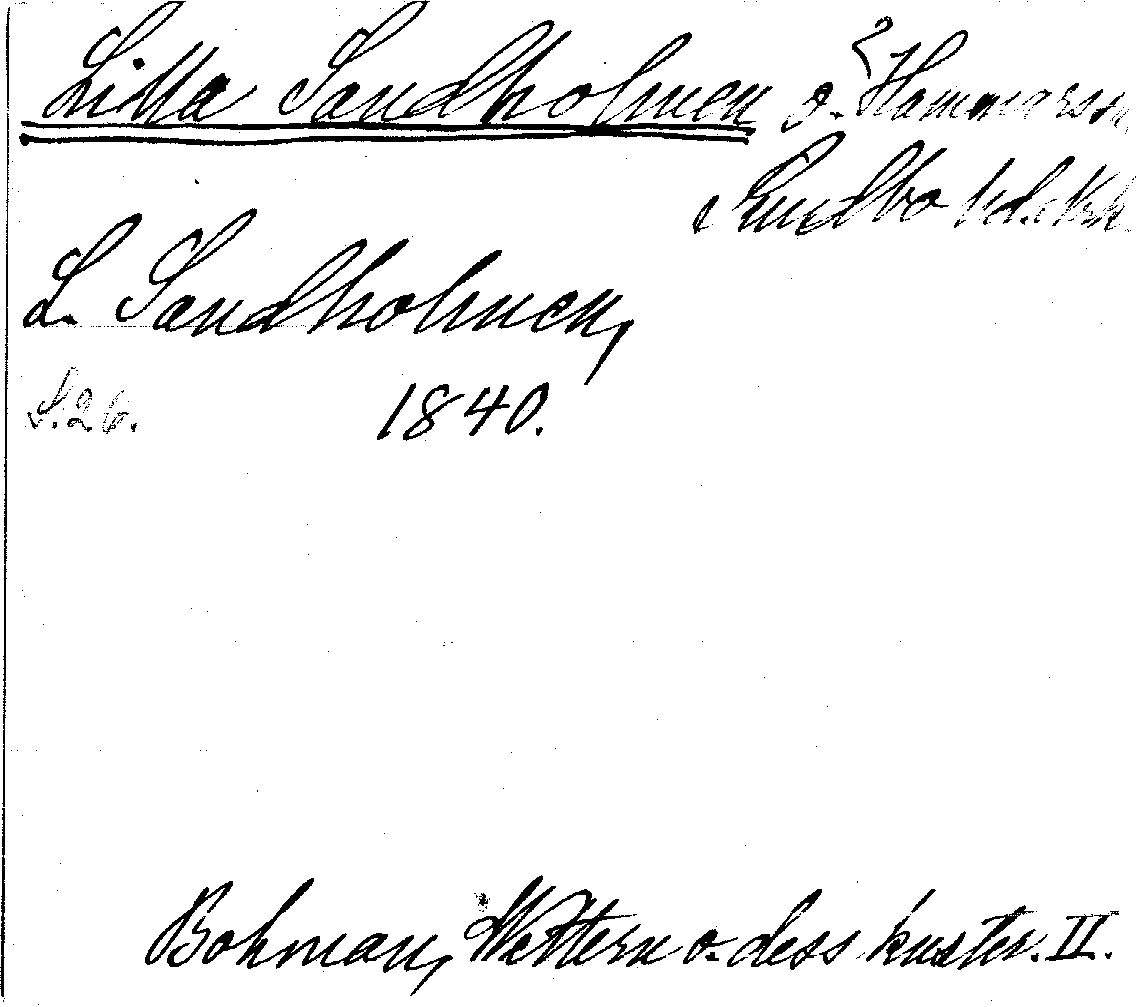 Lilla Sandholmen ö. ? Hammar sn,
Sundbo hd. Nrk.
L. Sandholmen,
S. 26. 1840.
Bohman, Wettern o. dess kuster. II.